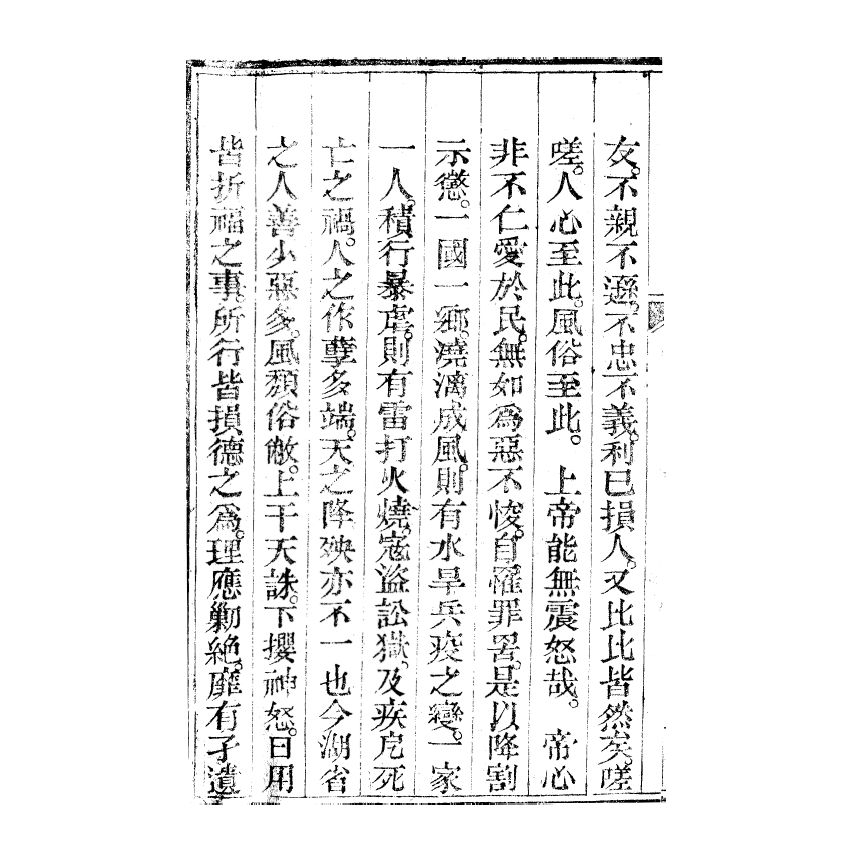 友。不親不遜。不忠不義。利己損人。又比比皆然矣。嗟
嗟。人心至此。風俗至此。　上帝能無震怒哉。　帝心
非不仁愛於民。無如為惡不悛。自罹罪罟。是以降割
示懲。一國一鄉。澆漓成風。則有水旱兵疫之變。一家
一人。積行暴虐。則有雷打火燒。寇盜訟獄。及疾戹死
亡之禍。人之作孽多端。天之降殃亦不一也今湖省
之人善少惡多。風頹俗敝。上干天誅。下攖神怒。日用
皆折福之事。所行皆損德之為。理應勦絕。靡有孑遺